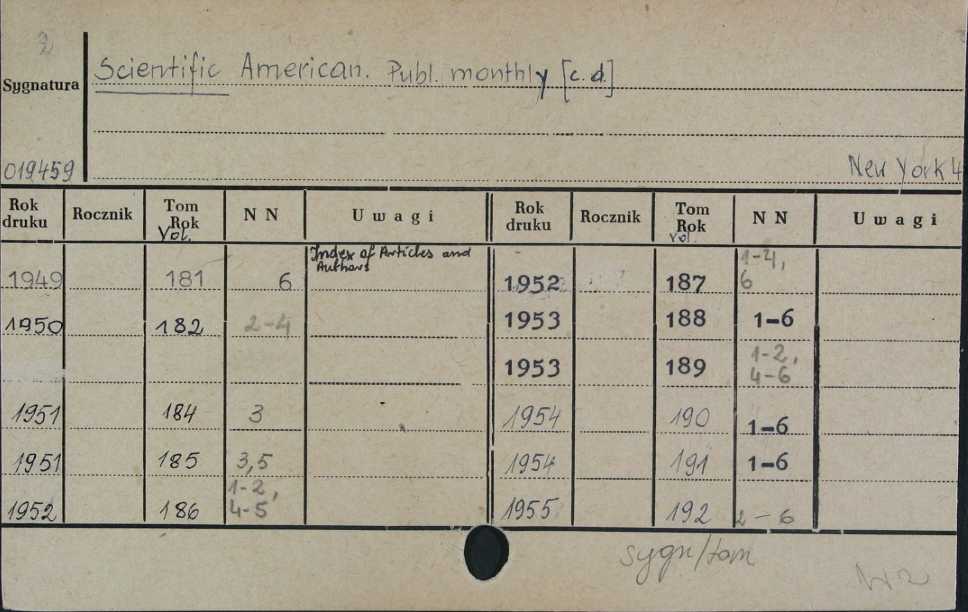 2
Sygnatura
Scientific American. Publ. monthly [c.d.]
019459
New York 4
Rok druku Rocznik Tom Rok Vol. N N Uwagi Rok druku Rocznik Tom Rok Vol. N N Uwagi
1949 181 6 Index of Articles and Authors 1952 187 1-4, 6
1950 182 2-4 1953 188 1-6
1953 189 1-2, 4-6
1951 184 3 1954 190 1-6
1951 185 3,5 1954 191 1-6
1952 186 1-2, 4-5 1955 192 2-6
sygn/tom